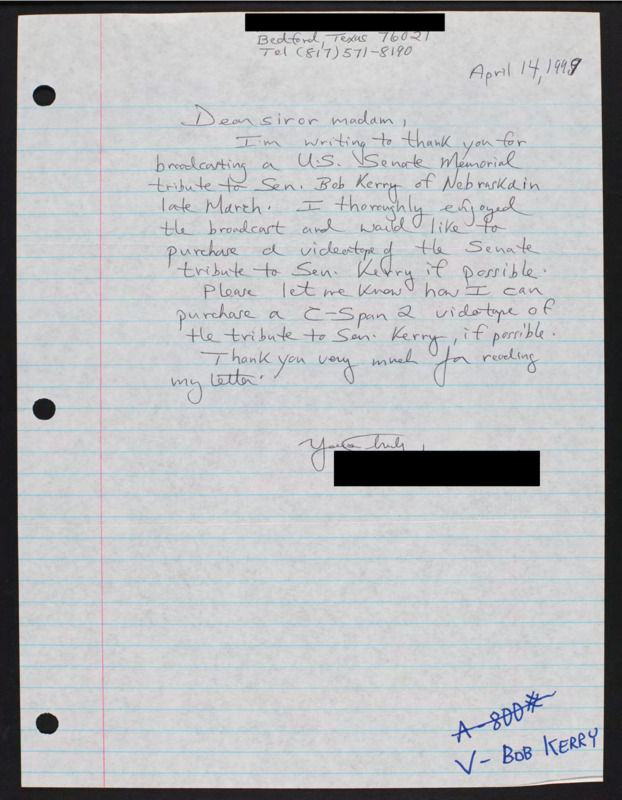 Bedford, Texas 76021
Tel (817) 571-8190
April 14, 1999
Dear sir or madam,
I'm writing to thank you for
broadcasting a U.S. Senate Memorial
tribute to Sen. Bob Kerry of Nebraska in
late March. I thoroughly enjoyed
the broadcast and would like to
purchase a videotape of the Senate
tribute to Sen. Kerry if possible.
Please let me know how I can
purchase a C-Span 2 videotape of
the tribute to Sen. Kerry, if possible.
Thank you very much for reading
my letter.
Yours truly,
A-800#
V- BOB KERRY